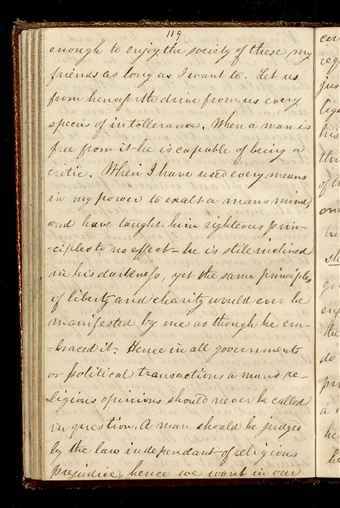 119
enough to enjoy the society of these my
friends as long as I want to. Let us
from henceforth drive from us every
species of intollerance. When a man is
free from it he is capable of being a
critic. When I have used every means
in my power to exalt a mans mind,
and have taught him righteous prin-
ciples to no effect – he is still inclined
in his darkness, yet the same principles
of liberty and charity would ever be
manifested by me as though he em-
-braced it. Hence in all governments
or political transactions a mans re-
ligious opinions should never be called
in question. A man should be judged
by the law independant of religious
prejudice, hence we want in our